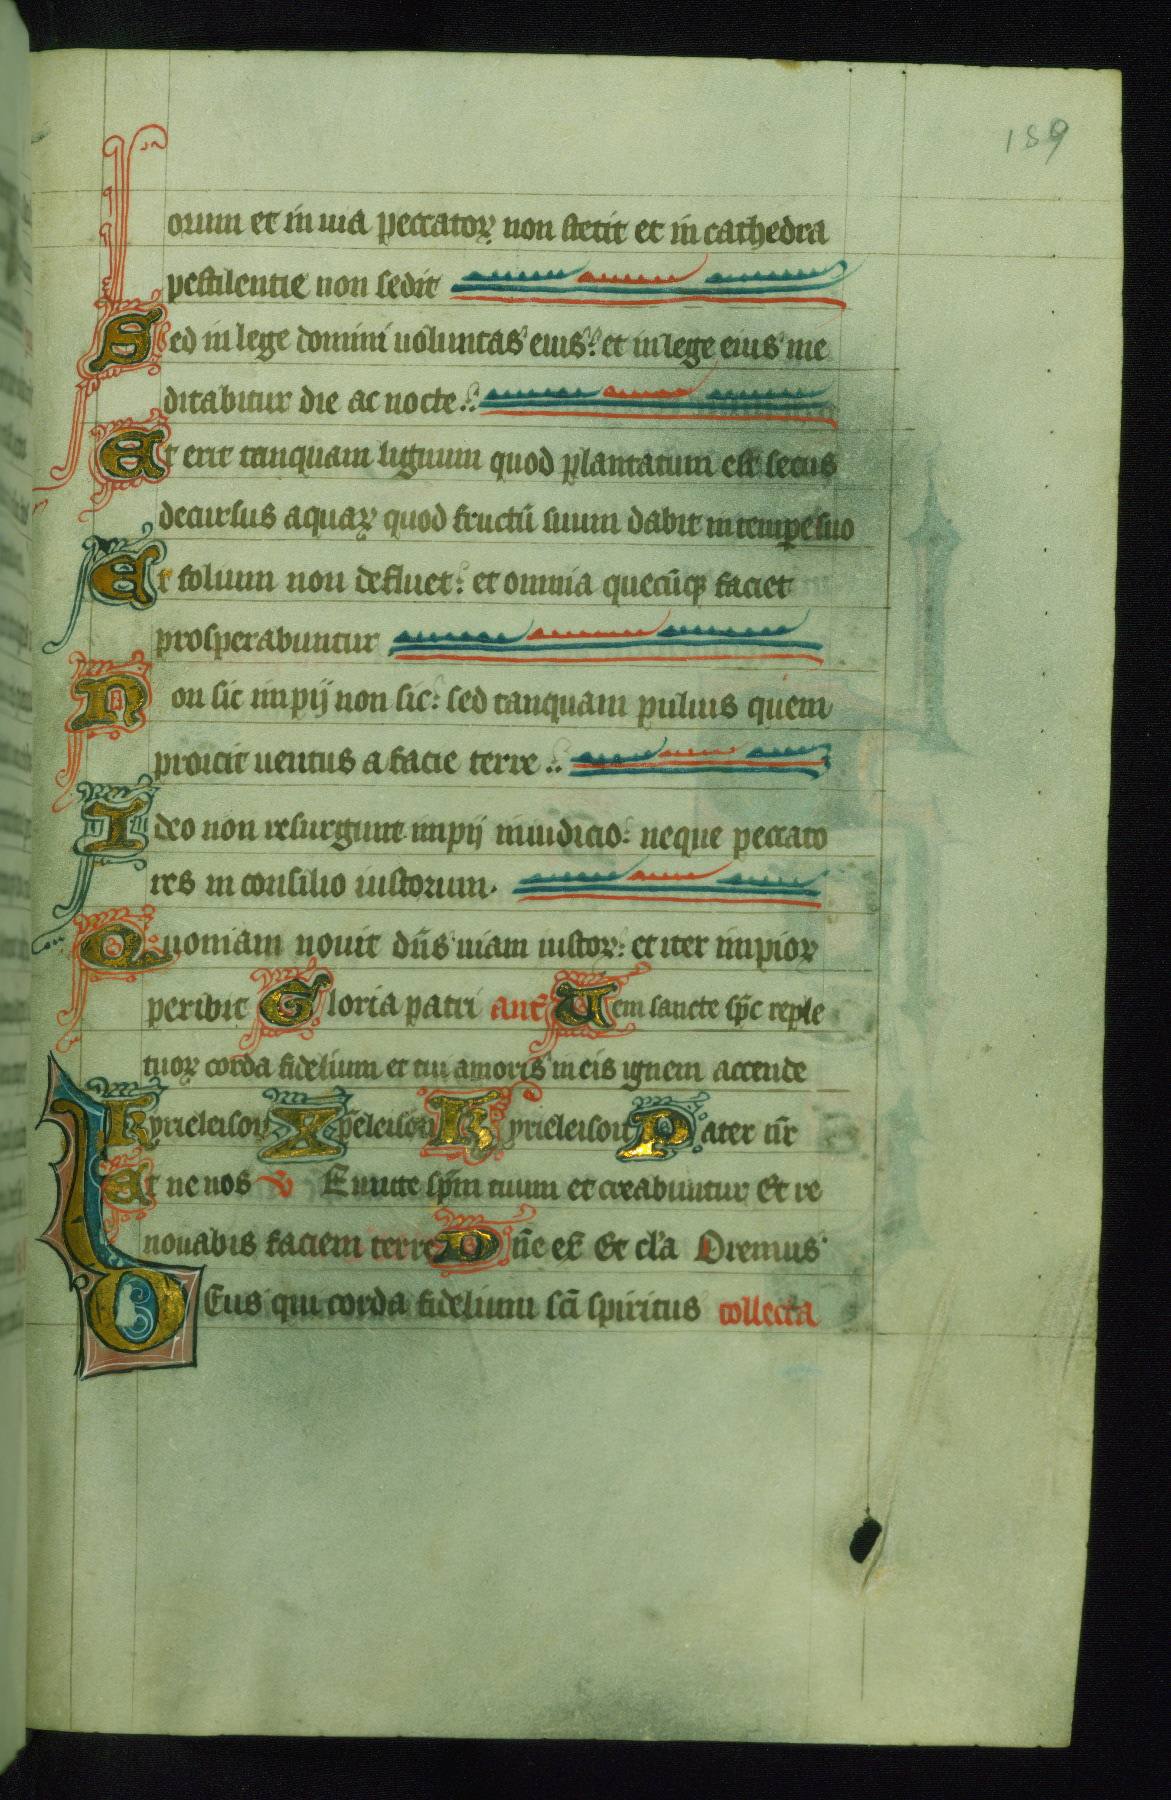 159
orum et in uia peccatoꝝ non stetit et in cathedra
pestilentie non sedit
Sed in lege domini uoluntas eius: et in lege eius me
ditabitur die ac nocte:
Et erit tanquam lignum quod plantatum est secus
decursus aquaꝝ quod fructū suum dabit in tempe suo
Et folium non defluet: et omnia quecūqꝫ faciet
prosperabuntur
Non sic impij non sic: sed tanquam puluis quem
proicit uentus a facie terre:
Ideo non resurgunt impij in iudicio: neque peccato
res in consilio iustorum.
Quoniam nouit dn̄s uiam iustoꝝ: et iter impioꝝ
peribit Gloria patri ant̄ Uem sancte sp̄c reple
tuoꝝ corda fidelium et tui amoris in eis ignem accende
Kyrieleison Xp̄eleison Kyrieleison Pater nr̄
Et ne nos v Emitte sp̄m tuum et creabuntur Et re
nouabis faciem terre Dn̄e ex̄ Et cla Oremus
DEus qui corda fidelium sc̄i spiritus collecta